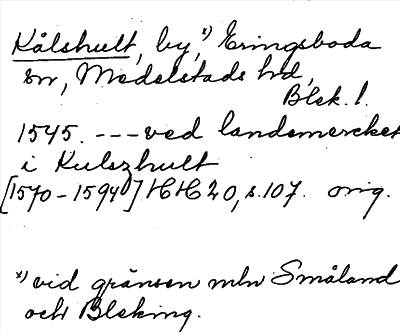 Kålshult, by,*) Eringsboda
sn, Medelstads hd,
Blek. l.
1545. --- ved landemercket
i Kulszhult
[1570-1594] HH 20, s. 107. orig.
*) vid gränsen mln Småland
och Bleking.